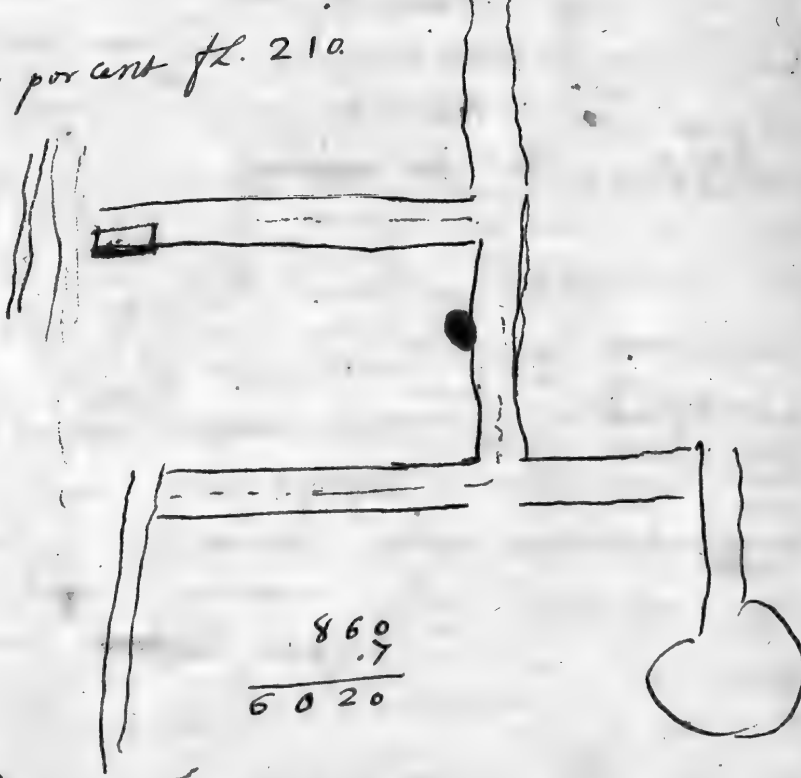 por cent fl. 210.
860
.7
6020